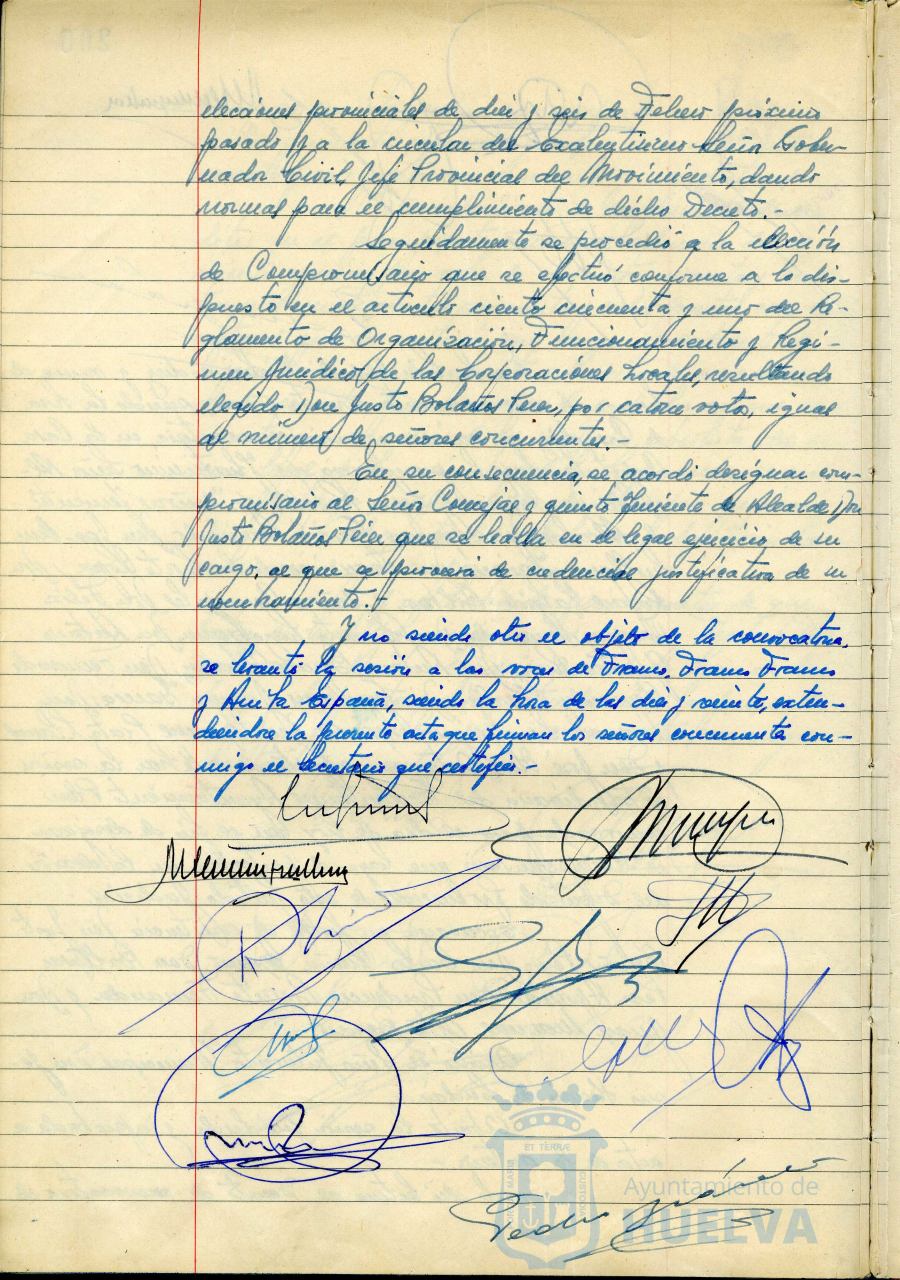 elecciones provinciales de diez y seis de Febrero próximo
pasado y a la circular del Excelentísimo Señor Gober-
nador Civil, Jefe Provincial del Movimiento, dando
normas para el cumplimiento de dicho Decreto.-
Seguidamente se procedió a la elección
de Compromisario que se efectuó conforme a lo dis-
puesto en el artículo ciento cincuenta y uno del Re-
glamento de Organización, Funcionamiento y Régi-
men Jurídico de las Corporaciones Locales, resultando
elegido Don Justo Bolaños Pérez, por catorce votos, igual
al número de señores concurrentes.-
En su consecuencia, se acordó designar com-
promisario al Señor Concejal y quinto Teniente de Alcalde Don
Justo Bolaños Pérez que se halla en el legal ejercicio de su
cargo, al que se proveerá de credencial justificativa de su
nombramiento.-
Y no siendo otro el objeto de la convocatoria,
se levantó la sesión a las voces de Franco, Franco, Franco
y Arriba España, siendo la hora de las diez y veinte, exten-
diéndose la presente acta que firman los señores concurrentes con-
migo el Secretario que certifico.-
Pedro
ET TERRÆ
PORTUS MARIS
CUSTODIA
Ayuntamiento de
HUELVA